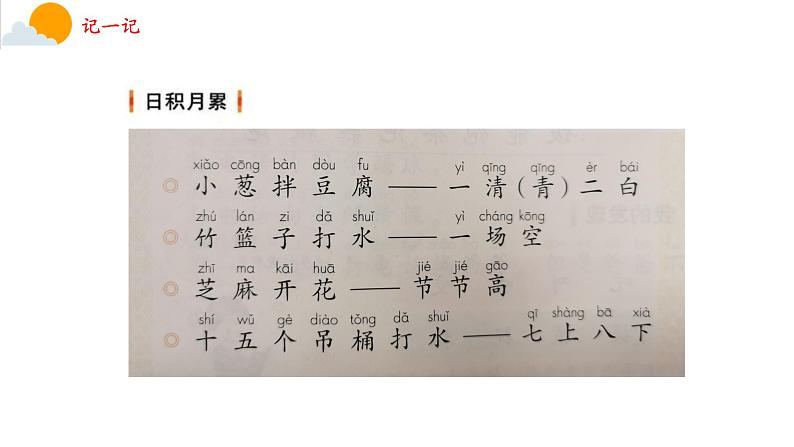 记一记
日积月累
xiǎo cōng bàn dòu fu yì qīng qīng èr bái
◎ 小葱拌豆腐——一清(青)二白
zhú lán zi dǎ shuǐ yì cháng kōng
◎ 竹篮子打水——一场空
zhī ma kāi huā jié jié gāo
◎ 芝麻开花——节节高
shí wǔ gè diào tǒng dǎ shuǐ qī shàng bā xià
◎ 十五个吊桶打水——七上八下